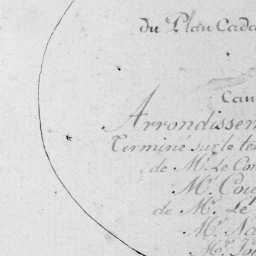 du Plan Cada
Can
Arrondissem
Terminé sur le te
de Mr. Le Con
Mr.
de Mr. Le
Mr. Na
Mr.